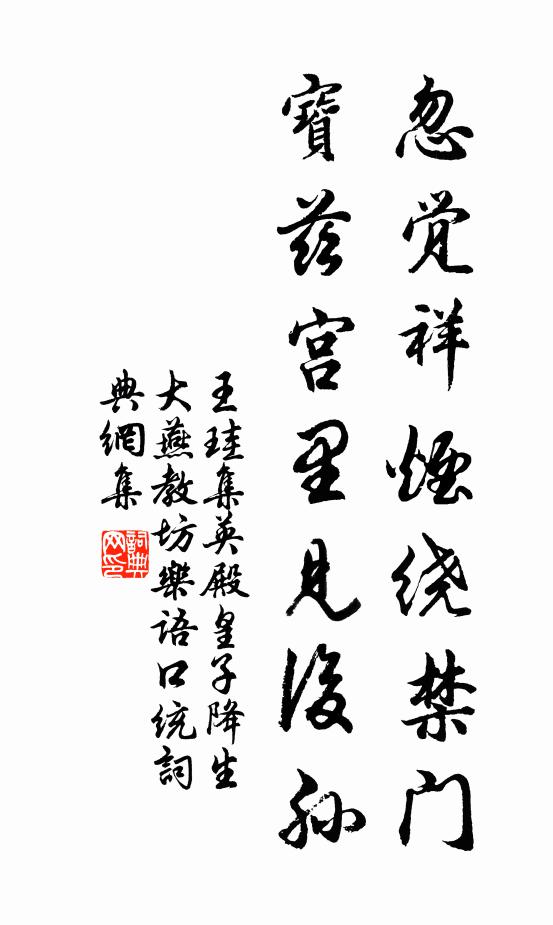 忽觉祥煙绕禁门
寶慈宫里见後孙
王珪集英殿皇子降生
大燕教坊樂語口统詞
典網集
詞典
网印